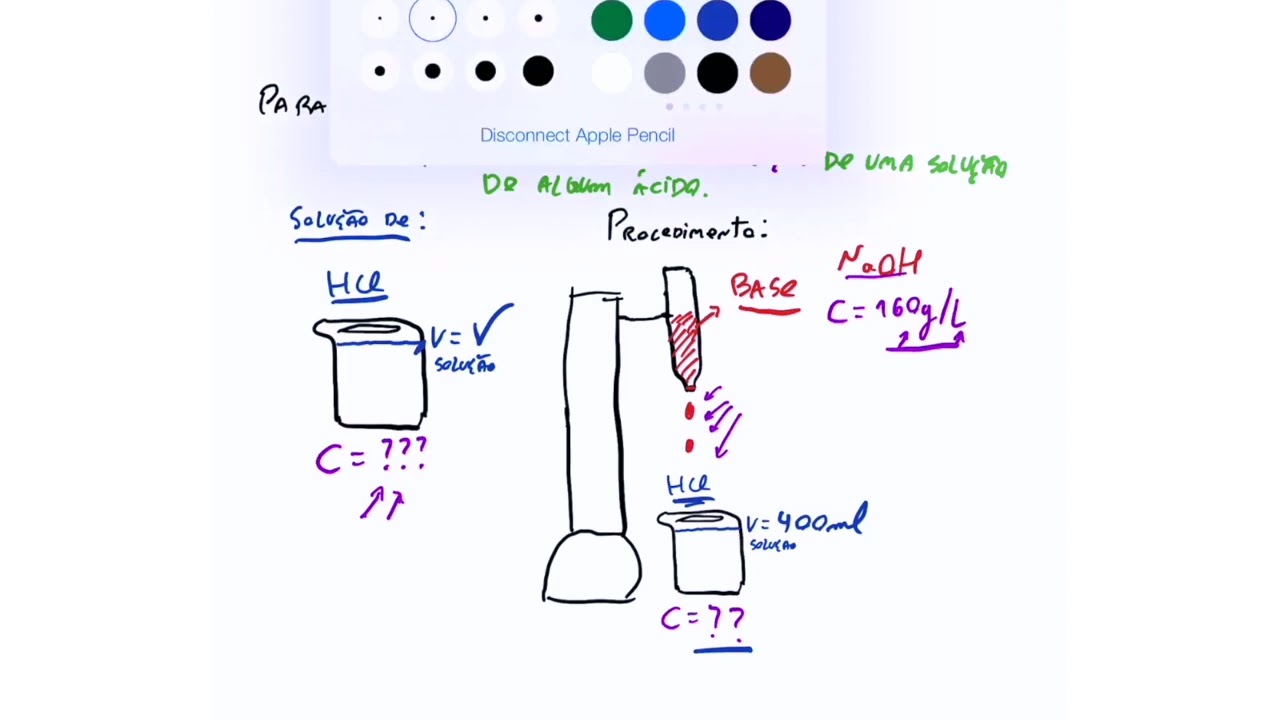 PARA
Disconnect Apple Pencil
DE UMA SOLUÇÃO
DE ALGUM ÁCIDO.
SOLUÇÃO DE:
HCl
V= ✓
SOLUÇÃO
C= ???
PROCEDIMENTO:
BASE
NaOH
C= 160g/L
HCl
V= 400ml
SOLUÇÃO
C= ??